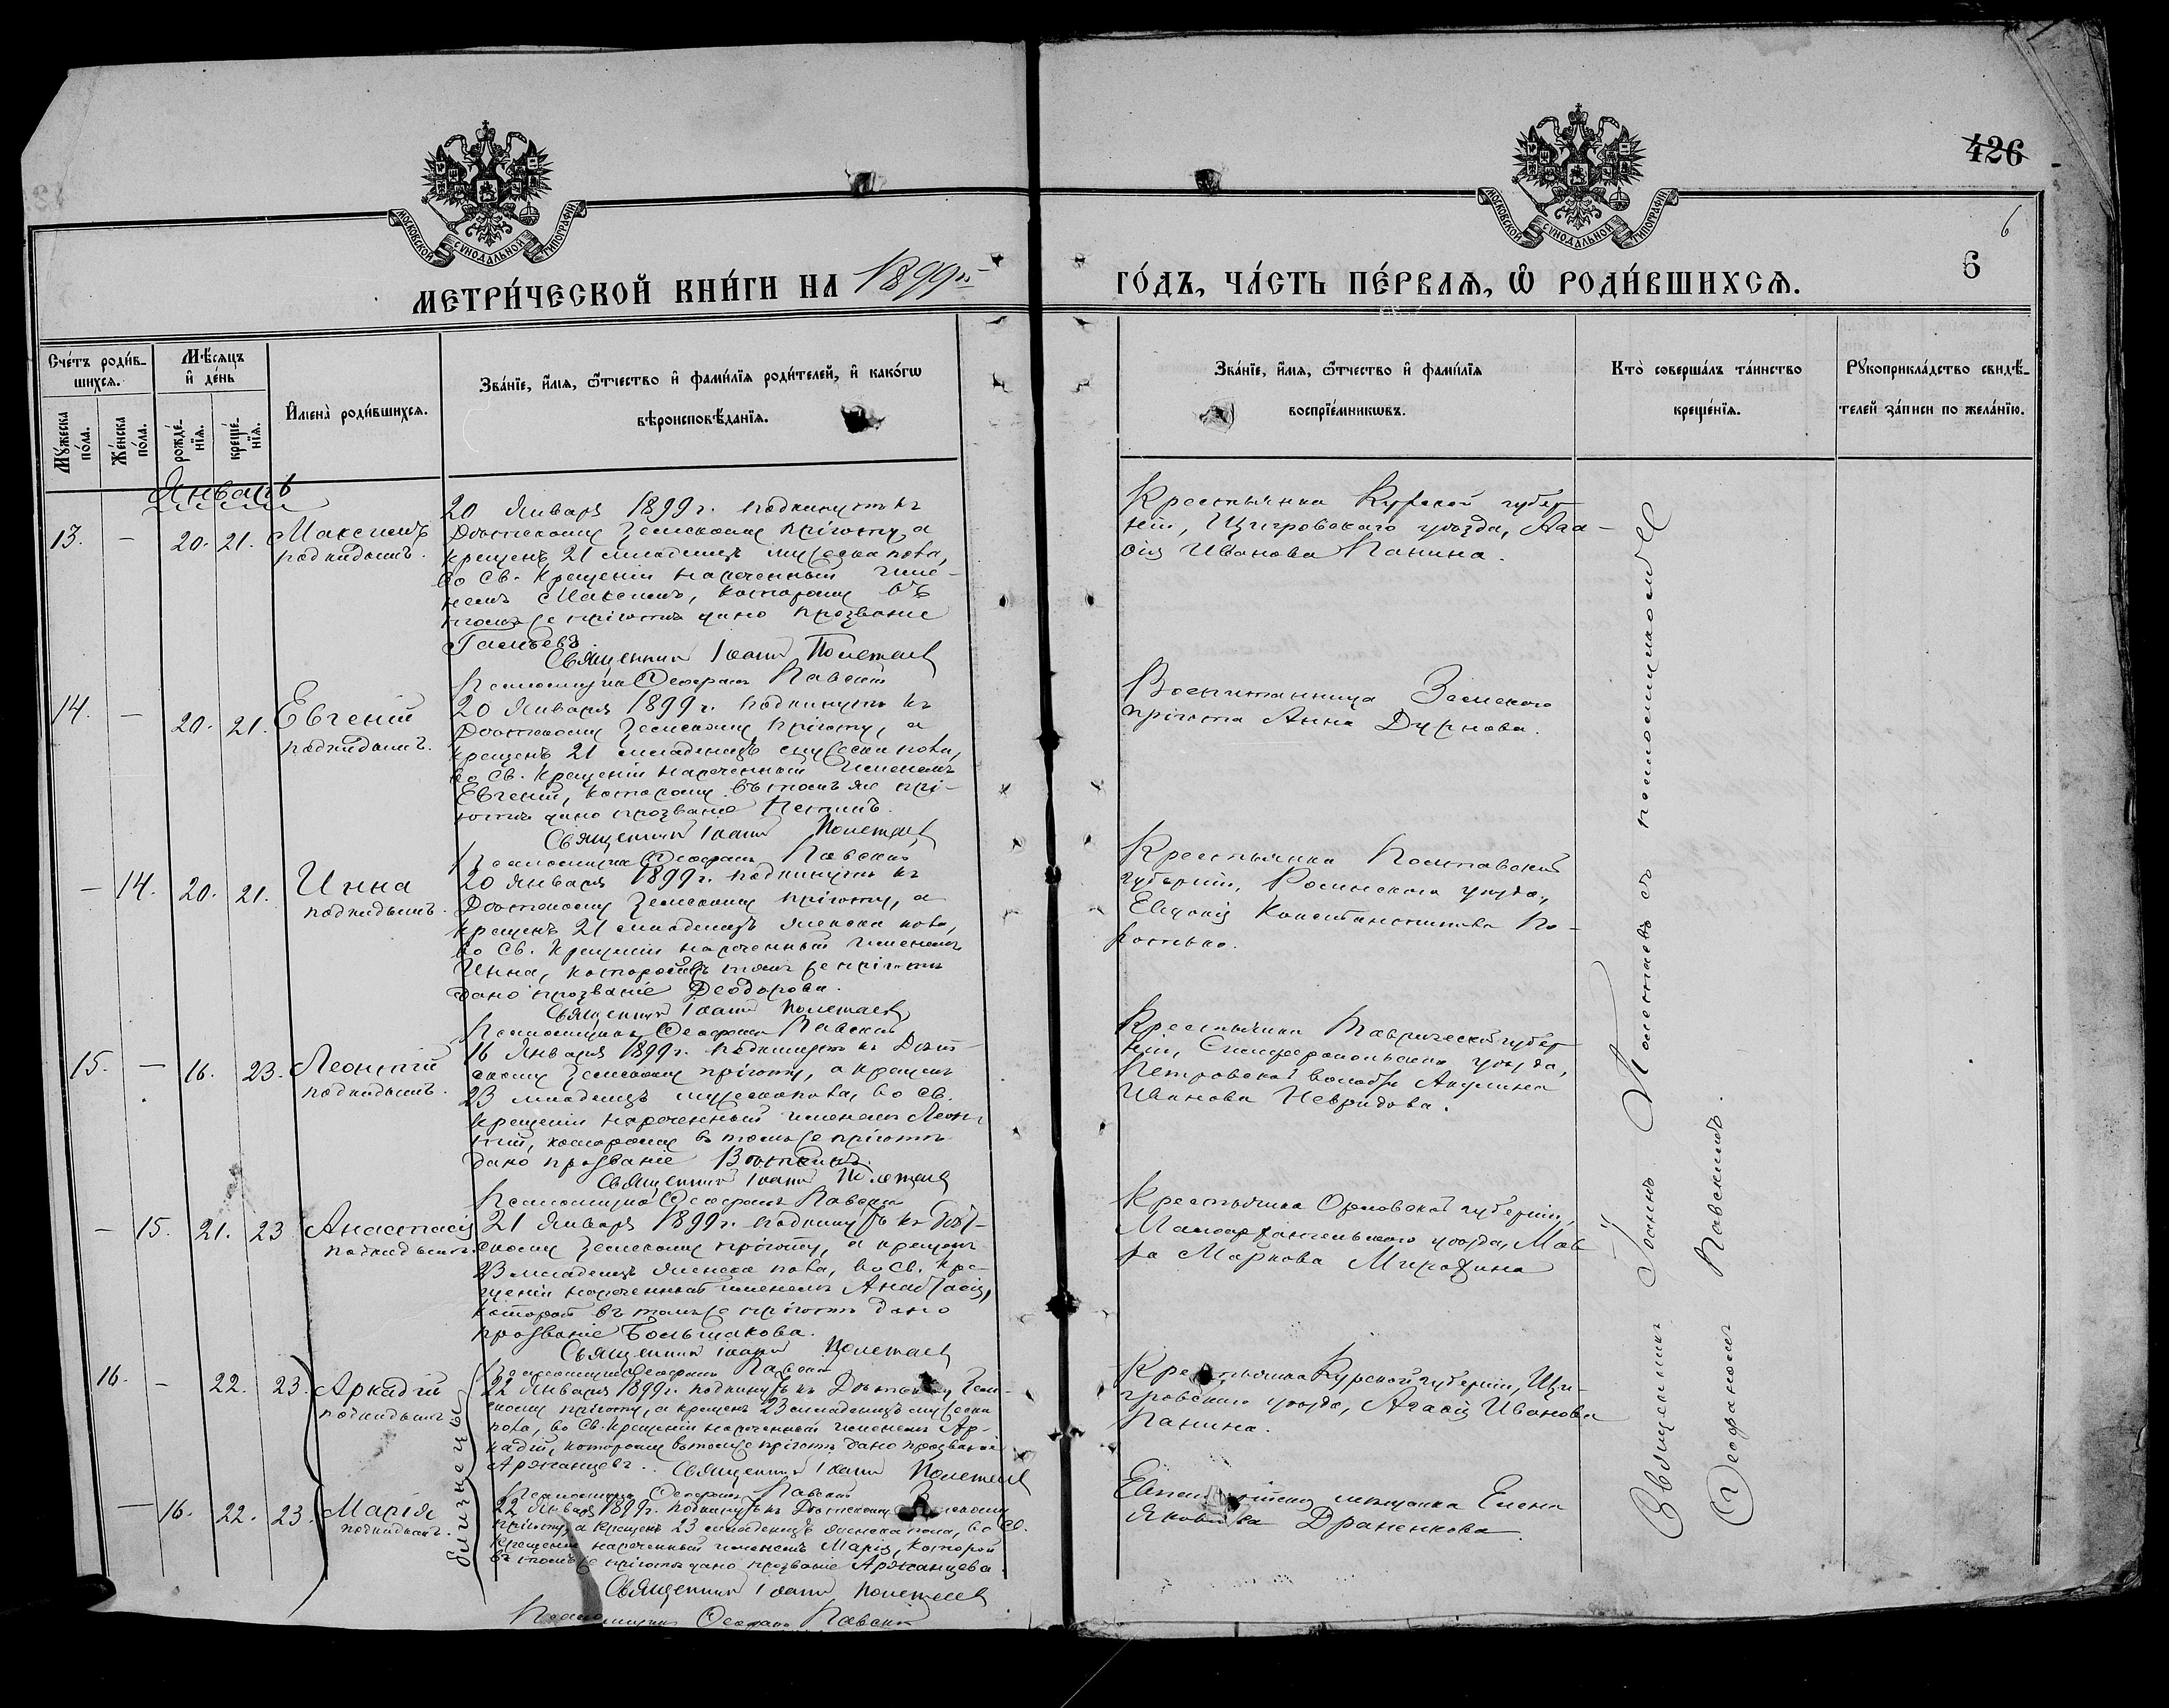 МОСКОВСКОЙ СѴНОДАЛЬНОЙ ТИПОГРАФІИ
МОСКОВСКОЙ СѴНОДАЛЬНОЙ ТИПОГРАФІИ
426
6
6
МЕТРИ́ЧЕСКОЙ КНИ́ГИ НА 1899й
ГО́ДЪ, ЧА́СТЬ ПЕ́РВАѦ, Ѡ҆ РОДИ́ВШИХСѦ.
Сче́тъ роди́в-
шихсѧ.
Мѣ́сѧцъ
и҆ де́нь
Мꙋ́жеска
по́ла.
Же́нска
по́ла.
рожде́-
нїѧ.
креще́-
нїѧ.
И҆мена̀ роди́вшихсѧ.
Зва́нїе, и҆́мѧ, ѻ҆́тчество и҆ фами́лїѧ роди́телей, и҆ како́гѡ
вѣроисповѣ́данїѧ.
Зва́нїе, и҆́мѧ, ѻ҆́тчество и҆ фами́лїѧ
воспрїе́мникѡвъ.
Кто̀ соверша́лъ та́инство
креще́нїѧ.
Рꙋкоприкла́дство свидѣ́-
телей за́писи по жела́нїю.
Январь
13. - 20. 21. Максимъ
подкидышъ.
20 Января 1899 г. подкинутъ къ
Дѣтскому Земскому пріюту, а
крещенъ 21 младенецъ мужеска пола,
во Св. Крещеніи нареченный име-
немъ Максимъ, которому въ
томъ же пріютѣ дано прозваніе
Священникъ Іоаннъ Полетаевъ
Псаломщикъ Ѳеофанъ Павскій
Крестьянка Курской губер
ніи, Щигровскаго уѣзда, Ага-
фія Иванова Панина.
14. - 20. 21. Евгеній
подкидышъ.
20 Января 1899 г. подкинутъ къ
Дѣтскому Земскому пріюту, а
крещенъ 21 младенецъ мужеска пола,
во Св. Крещеніи нареченный именемъ
Евгеній, которому въ томъ же прі-
ютѣ дано прозваніе
Священникъ Іоаннъ Полетаевъ
Псаломщикъ Ѳеофанъ Павскій
Воспитанница Земскаго
пріюта Анна Дурнова.
- 14. 20. 21. Инна
подкидышъ.
20 Января 1899 г. подкинутъ къ
Дѣтскому Земскому пріюту, а
крещенъ 21 младенецъ женска пола,
во Св. Крещеніи нареченный именемъ
Инна, которой въ томъ же пріютѣ
дано прозваніе Ѳеодорова.
Священникъ Іоаннъ Полетаевъ
Псаломщикъ Ѳеофанъ Павскій
Крестьянка Полтавской
губерніи, уѣзда,
Евдокія Константинова
15. - 16. 23. Леонтій
подкидышъ.
16 Января 1899 г. подкинутъ къ Дѣт-
скому Земскому пріюту, а крещенъ
23 младенецъ мужеска пола, во Св.
Крещеніи нареченный именемъ Леон-
тій, которому въ томъ же пріютѣ
дано прозваніе
Священникъ Іоаннъ Полетаевъ
Псаломщикъ Ѳеофанъ Павскій
Крестьянка Таврической губер
ніи, Симферопольскаго уѣзда,
Петровской волости Акулина
Иванова
- 15. 21. 23 Анастасія
подкидышъ.
21 Января 1899 г. подкинутъ къ Дѣт-
скому Земскому пріюту, а крещенъ
23 младенецъ женска пола, во Св. Кре-
щеніи нареченный именемъ Анастасія,
которой въ томъ же пріютѣ дано
прозваніе Большакова.
Священникъ Іоаннъ Полетаевъ
Псаломщикъ Ѳеофанъ Павскій
Крестьянка Орловской губерніи,
Малоархангельскаго уѣзда, Мав
ра Маркова
16. - 22. 23. Аркадій
подкидышъ
близнецы
22 Января 1899 г. подкинутъ къ Дѣтскому Зем-
скому пріюту, а крещенъ 23 младенецъ мужеска
пола, во Св. Крещеніи нареченный именемъ Ар-
кадій, которому въ томъ же пріютѣ дано прозваніе
Аржанцевъ. Священникъ Іоаннъ Полетаевъ
Псаломщикъ Ѳеофанъ Павскій
Крестьянка Курской губерніи, Щи-
гровскаго уѣзда, Агафія Иванова
Панина.
- 16. 22. 23. Марія
подкидышъ.
22 Января 1899 г. подкинутъ къ Дѣтскому Земскому
пріюту, а крещенъ 23 младенецъ женска пола, во Св.
Крещеніи нареченный именемъ Марія, которой
въ томъ же пріютѣ дано прозваніе Аржанцева.
Священникъ Іоаннъ Полетаевъ
Псаломщикъ Ѳеофанъ Павскій
мѣщанка Елена
Яковлева Драненкова.
Священникъ Іоаннъ Полетаевъ съ псаломщикомъ
Ѳеофаномъ Павскимъ.